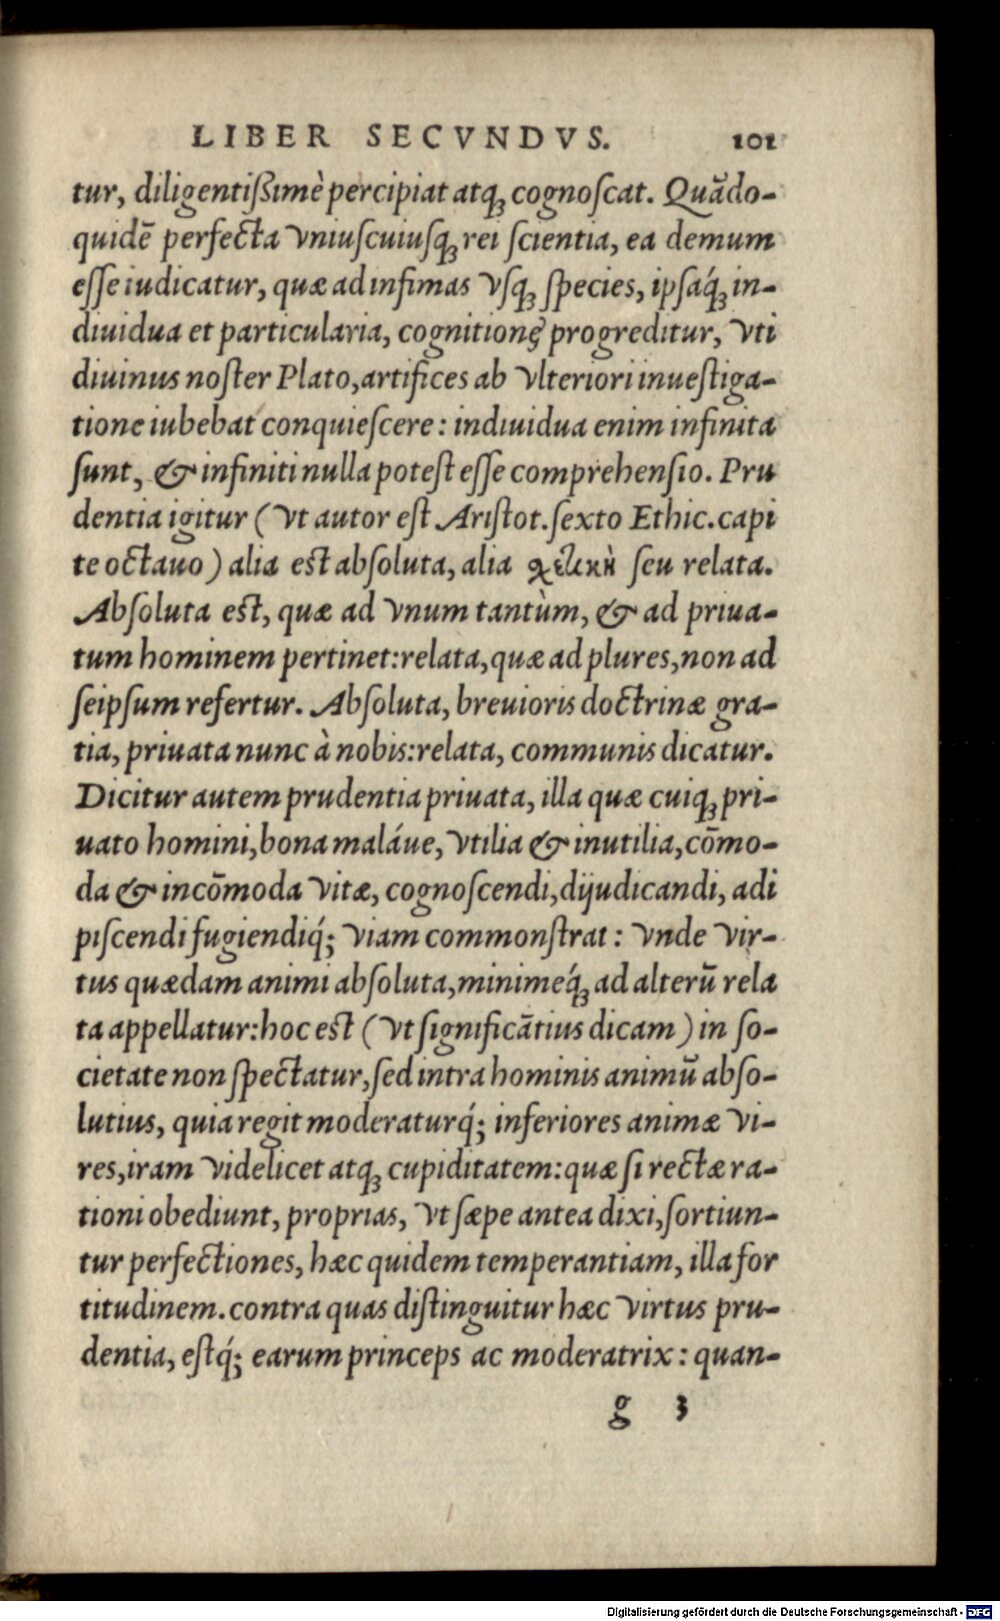 LIBER SECVNDVS. 101
tur, diligentißimè percipiat atq; cognoſcat. Quādo-
quidē perfecta vniuſcuiuſq; rei ſcientia, ea demum
eſſe iudicatur, quæ ad infimas vſq; ſpecies, ipſaq́; in-
diuidua et particularia, cognitione progreditur, vti
diuinus noſter Plato, artifices ab vlteriori inueſtiga-
tione iubebat conquieſcere: indiuidua enim infinita
ſunt, & infiniti nulla poteſt eſſe comprehenſio. Pru
dentia igitur (vt autor eſt Ariſtot. ſexto Ethic. capi
te octauo) alia eſt abſoluta, alia χετικὴ ſeu relata.
Abſoluta eſt, quæ ad vnum tantùm, & ad priua-
tum hominem pertinet: relata, quæ ad plures, non ad
ſeipſum refertur. Abſoluta, breuioris doctrinæ gra-
tia, priuata nunc à nobis: relata, communis dicatur.
Dicitur autem prudentia priuata, illa quæ cuiq; pri-
uato homini, bona maláue, vtilia & inutilia, cōmo-
da & incōmoda vitæ, cognoſcendi, dijudicandi, adi
piſcendi fugiendiq́; viam commonſtrat: vnde vir-
tus quædam animi abſoluta, minimeq́; ad alterū rela
ta appellatur: hoc eſt (vt ſignificātius dicam) in ſo-
cietate non ſpectatur, ſed intra hominis animū abſo-
lutius, quia regit moderaturq́; inferiores animæ vi-
res, iram videlicet atq; cupiditatem: quæ ſi rectæ ra-
tioni obediunt, proprias, vt ſæpe antea dixi, ſortiun-
tur perfectiones, hæc quidem temperantiam, illa for
titudinem. contra quas diſtinguitur hæc virtus pru-
dentia, eſtq́; earum princeps ac moderatrix: quan-
g 3
Digitalisierung gefördert durch die Deutsche Forschungsgemeinschaft - DFG